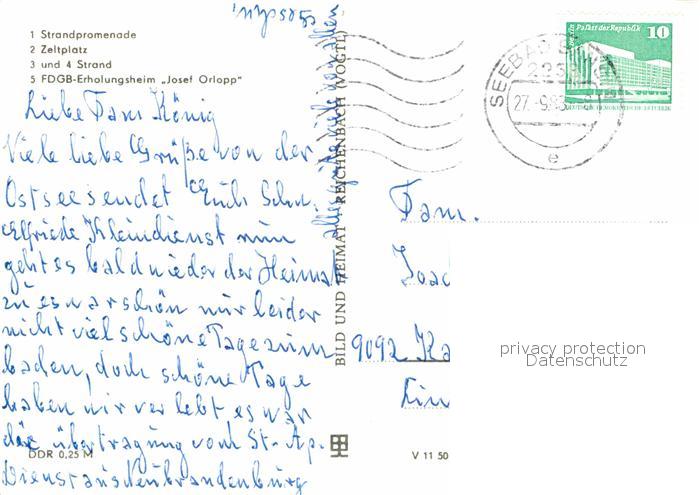 1 Strandpromenade
2 Zeltplatz
3 und 4 Strand
5 FDGB-Erholungsheim „Josef Orlopp"
Liebe Fam König
Viele liebe Grüße von der
Ostsee sendet Euch Schw.
Elfriede Kleindienst nun
geht es bald wieder der Heimat
zu es war schön nur leider
nicht viel schöne Tage zum
baden, doch schöne Tage
haben wir verlebt es war
die übertragung vom St. Ap.
Dienst aus Neubrandenburg
DDR 0,25 M
BILD UND HEIMAT REICHENBACH (VOGTL)
V 11 50
SEEBAD
27.-9.83
e
Palast der Republik
10
Fam.
9092 Ka
privacy protection
Datenschutz